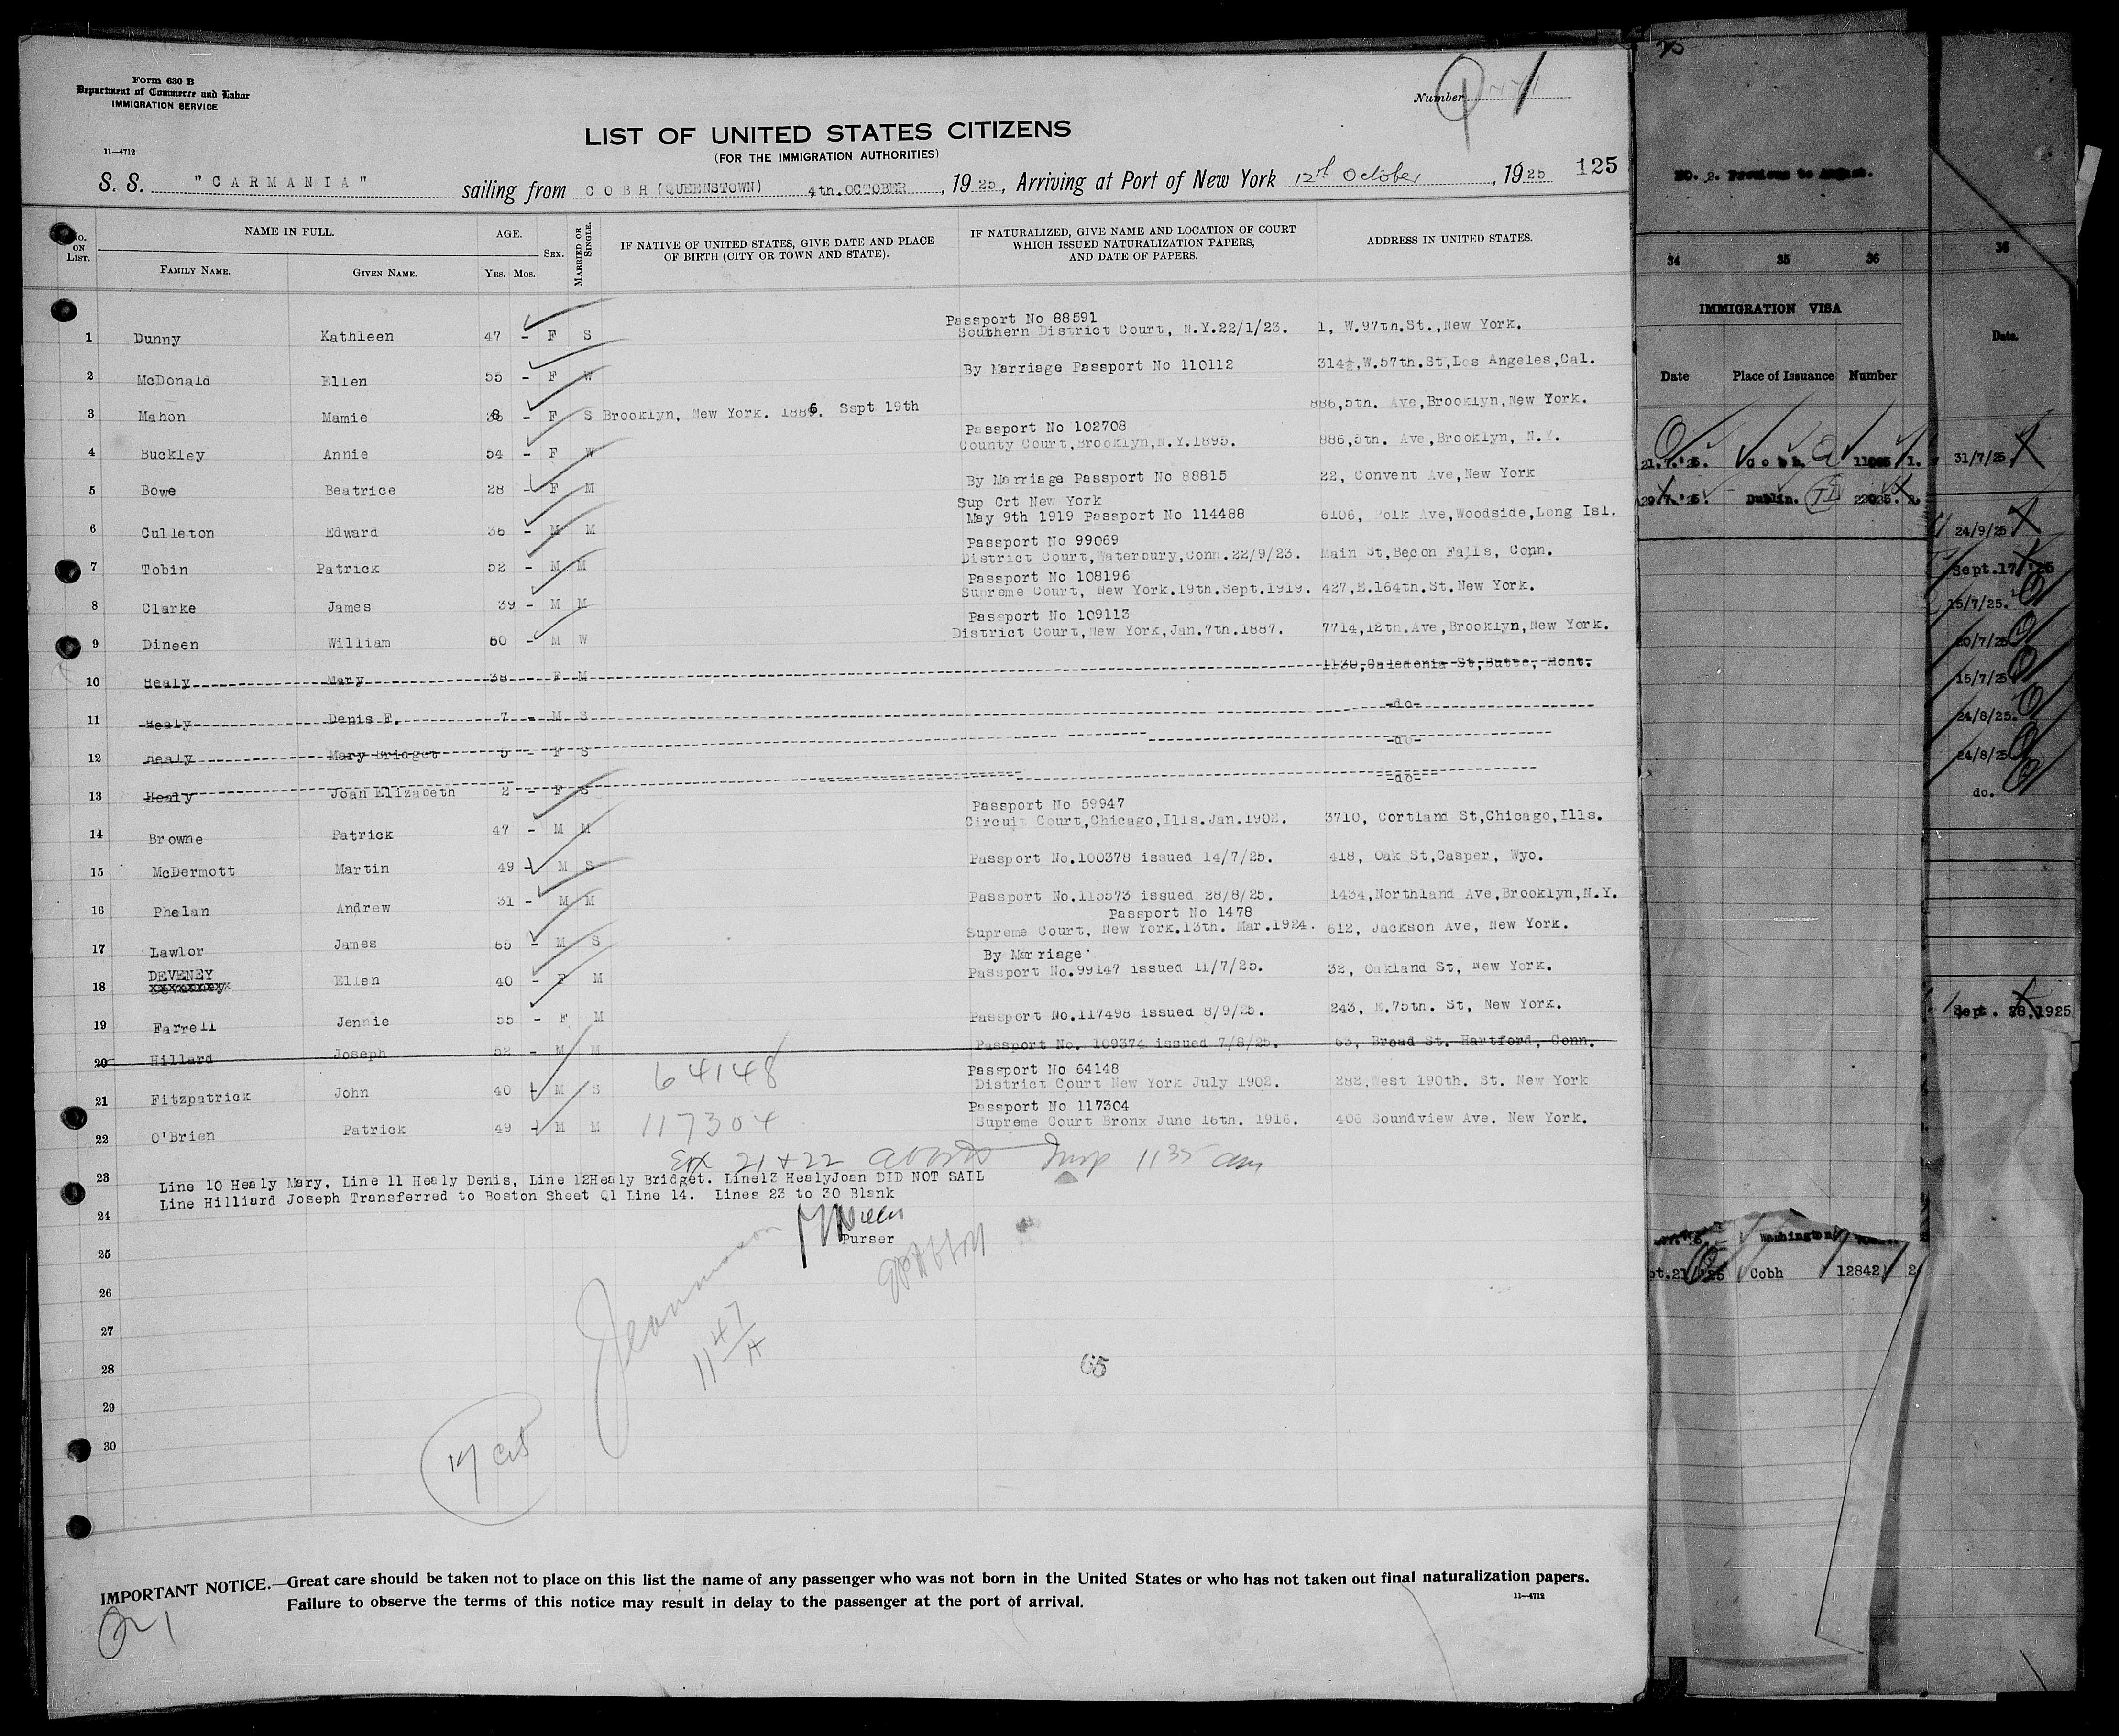 Form 630 B
Department of Commerce and Labor
IMMIGRATION SERVICE
Number
LIST OF UNITED STATES CITIZENS
(FOR THE IMMIGRATION AUTHORITIES)
11—4712
S. S. "CARMANIA" sailing from COBH (QUEENSTOWN) 4th. OCTOBER, 1925, Arriving at Port of New York 12th October, 1925 125
No. ON LIST. NAME IN FULL. AGE. SEX. MARRIED OR SINGLE. IF NATIVE OF UNITED STATES, GIVE DATE AND PLACE OF BIRTH (CITY OR TOWN AND STATE). IF NATURALIZED, GIVE NAME AND LOCATION OF COURT WHICH ISSUED NATURALIZATION PAPERS, AND DATE OF PAPERS. ADDRESS IN UNITED STATES.
FAMILY NAME. GIVEN NAME. YRS. MOS.
Passport No 88591
1 Dunny Kathleen 47 - F S Southern District Court, N.Y.22/1/23. 1, W.97th.St.,New York.
2 McDonald Ellen 55 - F W By Marriage Passport No 110112 314½,W.57th.St,Los Angeles,Cal.
3 Mahon Mamie 38 - F S Brooklyn, New York. 1886. Sept 19th 886,5th. Ave,Brooklyn,New York.
Passport No 102708
4 Buckley Annie 54 - F W County Court,Brooklyn,N.Y.1895. 886,5th. Ave,Brooklyn, N.Y.
5 Bowe Beatrice 28 - F M By Marriage Passport No 88815 22, Convent Ave,New York
Sup Crt New York
6 Culleton Edward 36 - M M May 9th 1919 Passport No 114488 6106, Polk Ave,Woodside,Long Isl.
Passport No 99069
7 Tobin Patrick 52 - M M District Court,Waterbury,Conn.22/9/23. Main St,Becon Falls, Conn.
Passport No 108196
8 Clarke James 39 - M M Supreme Court, New York.19th.Sept.1919. 427,E.164th.St.New York.
Passport No 109113
9 Dineen William 60 - M W District Court,New York,Jan.7th.1887. 7714,12th.Ave,Brooklyn,New York.
10 Healy Mary 38 - F M 1130,Caledonia St,Butte, Mont.
11 Healy Denis F. 7 - M S -do-
12 Healy Mary Bridget 5 - F S -do-
13 Healy Joan Elizabeth 2 - F S -do-
Passport No 59947
14 Browne Patrick 47 - M M Circuit Court,Chicago,Ills.Jan.1902. 3710, Cortland St,Chicago,Ills.
15 McDermott Martin 49 - M S Passport No.100378 issued 14/7/25. 418, Oak St,Casper, Wyo.
16 Phelan Andrew 31 - M M Passport No.115573 issued 28/8/25. 1434,Northland Ave,Brooklyn,N.Y.
Passport No 1478
17 Lawlor James 65 - M S Supreme Court, New York.13th. Mar.1924. 612, Jackson Ave, New York.
DEVENEY By Marriage
18 Ellen 40 - F M Passport No.99147 issued 11/7/25. 32, Oakland St, New York.
19 Farrell Jennie 55 - F M Passport No.117498 issued 8/9/25. 243, E.75th. St, New York.
20 Hillard Joseph 52 - M M Passport No. 109374 issued 7/8/25. 63, Broad St. Hartford, Conn.
Passport No 64148
21 Fitzpatrick John 40 - M S 64148 District Court New York July 1902. 282,West 190th. St. New York
Passport No 117304
22 O'Brien Patrick 49 - M M 117304 Supreme Court Bronx June 16th. 1916. 406 Soundview Ave. New York.
21 + 22 Insp 11 35 am
23 Line 10 Healy Mary, Line 11 Healy Denis, Line 12Healy Bridget. Line13 HealyJoan DID NOT SAIL
Line Hilliard Joseph Transferred to Boston Sheet Q1 Line 14. Lines 23 to 30 Blank
24
Purser
25
26
27
11 47/A
28
65
29
30
IMPORTANT NOTICE.—Great care should be taken not to place on this list the name of any passenger who was not born in the United States or who has not taken out final naturalization papers.
Failure to observe the terms of this notice may result in delay to the passenger at the port of arrival.
11—4712
34 35 36
IMMIGRATION VISA
Date Place of Issuance Number
21.7.'25. Cobh.
Dublin. 22025.
Washington
Cobh 12842 2
36
Date.
31/7/25.
24/9/25
Sept.17/'25
15/7/25.
20/7/25
15/7/25
24/8/25.
24/8/25
do.
Sept. 28,1925